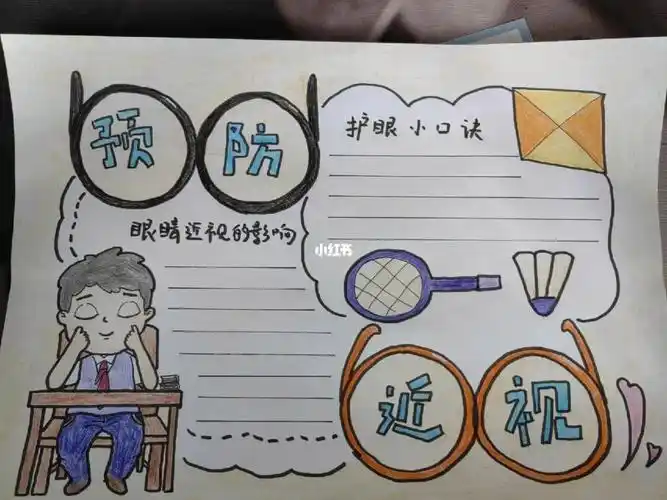 预防
护眼小口诀
眼睛近视的影响
小红书
近视